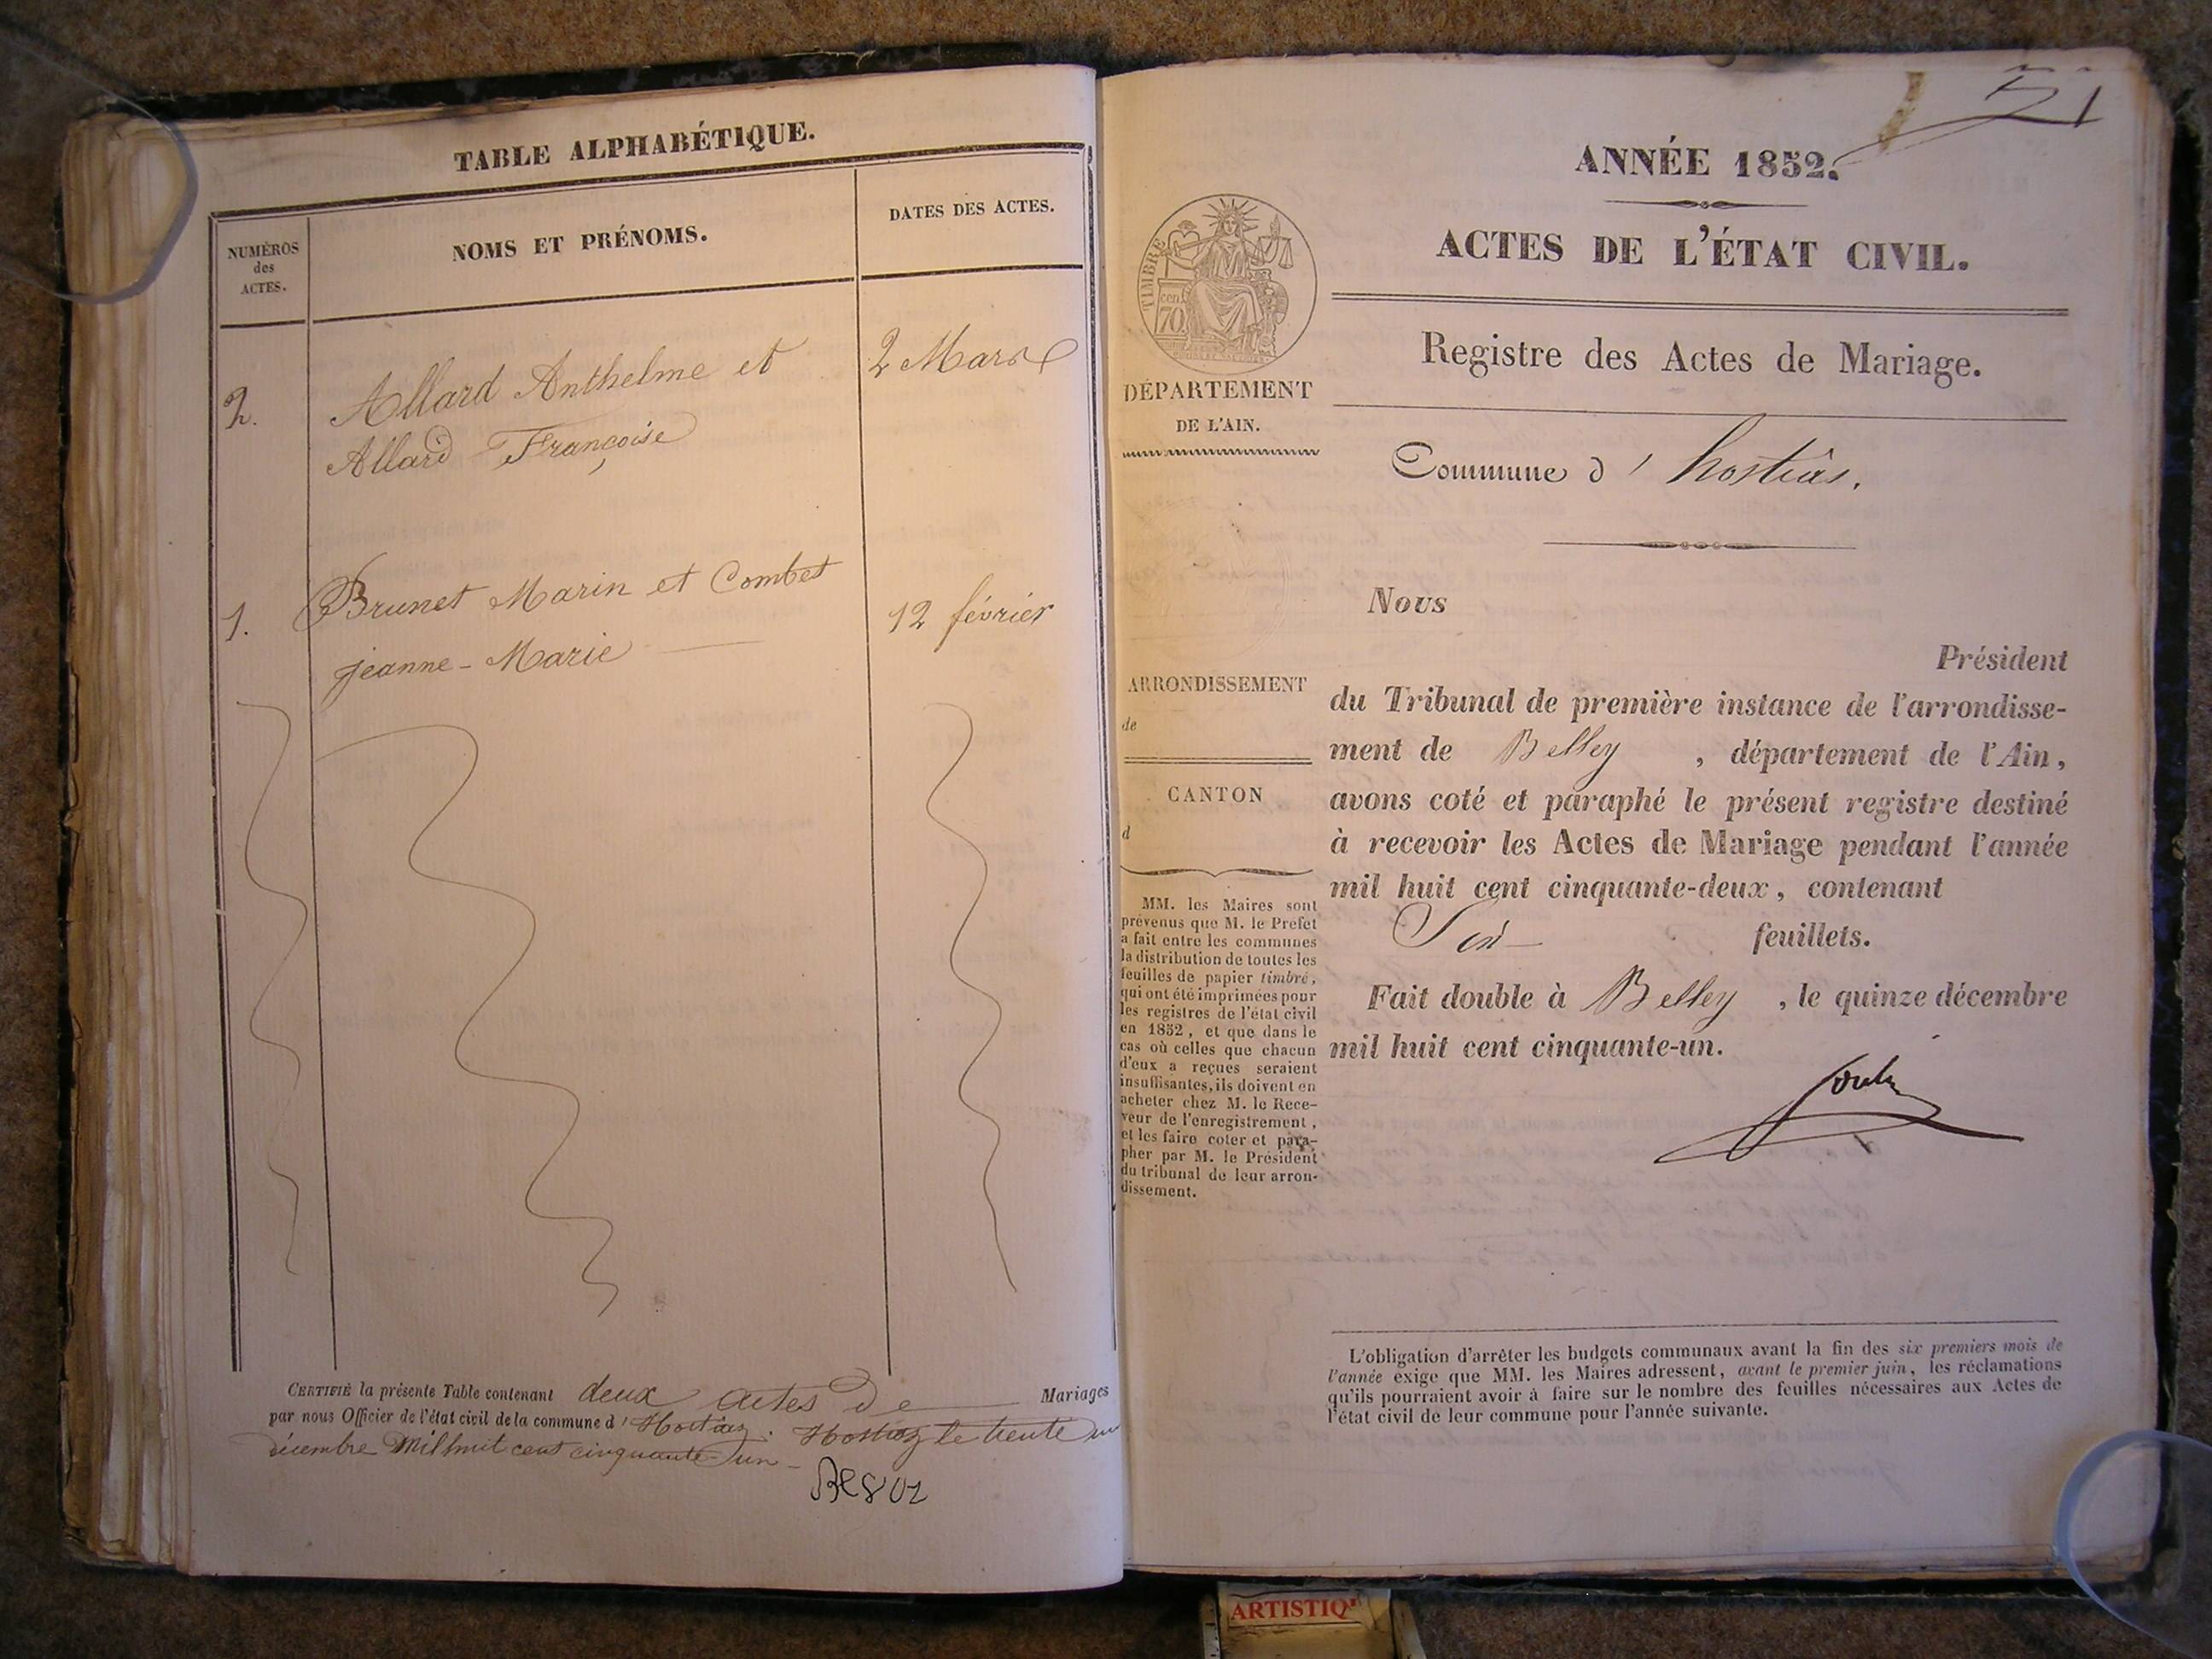 TABLE ALPHABÉTIQUE.
NUMÉROS
des
ACTES.
NOMS ET PRÉNOMS.
DATES DES ACTES.
2. Allard Anthelme et 2 Mars
Allard Françoise
1. Brunet Marin et Combet 12 février
jeanne-Marie
CERTIFIÉ la présente Table contenant deux actes de Mariages
par nous Officier de l'état civil de la commune d'Hostiaz. Hostiaz le trente un
décembre Mil huit cent cinquante-un
ANNÉE 1852.
ACTES DE L'ÉTAT CIVIL.
TIMBRE
cen.
70.
Registre des Actes de Mariage.
DÉPARTEMENT
DE L'AIN.
Commune d'hostiâs.
Nous
Président
du Tribunal de première instance de l'arrondisse-
ment de Belley, département de l'Ain,
avons coté et paraphé le présent registre destiné
à recevoir les Actes de Mariage pendant l'année
mil huit cent cinquante-deux, contenant
Six feuillets.
Fait double à Belley, le quinze décembre
mil huit cent cinquante-un.
ARRONDISSEMENT
de
CANTON
d
MM. les Maires sont
prévenus que M. le Préfet
a fait entre les communes
la distribution de toutes les
feuilles de papier timbré,
qui ont été imprimées pour
les registres de l'état civil
en 1852, et que dans le
cas où celles que chacun
d'eux a reçues seraient
insuffisantes, ils doivent en
acheter chez M. le Rece-
veur de l'enregistrement,
et les faire coter et para-
pher par M. le Président
du tribunal de leur arron-
dissement.
L'obligation d'arrêter les budgets communaux avant la fin des six premiers mois de
l'année exige que MM. les Maires adressent, avant le premier juin, les réclamations
qu'ils pourraient avoir à faire sur le nombre des feuilles nécessaires aux Actes de
l'état civil de leur commune pour l'année suivante.
ARTISTIQ